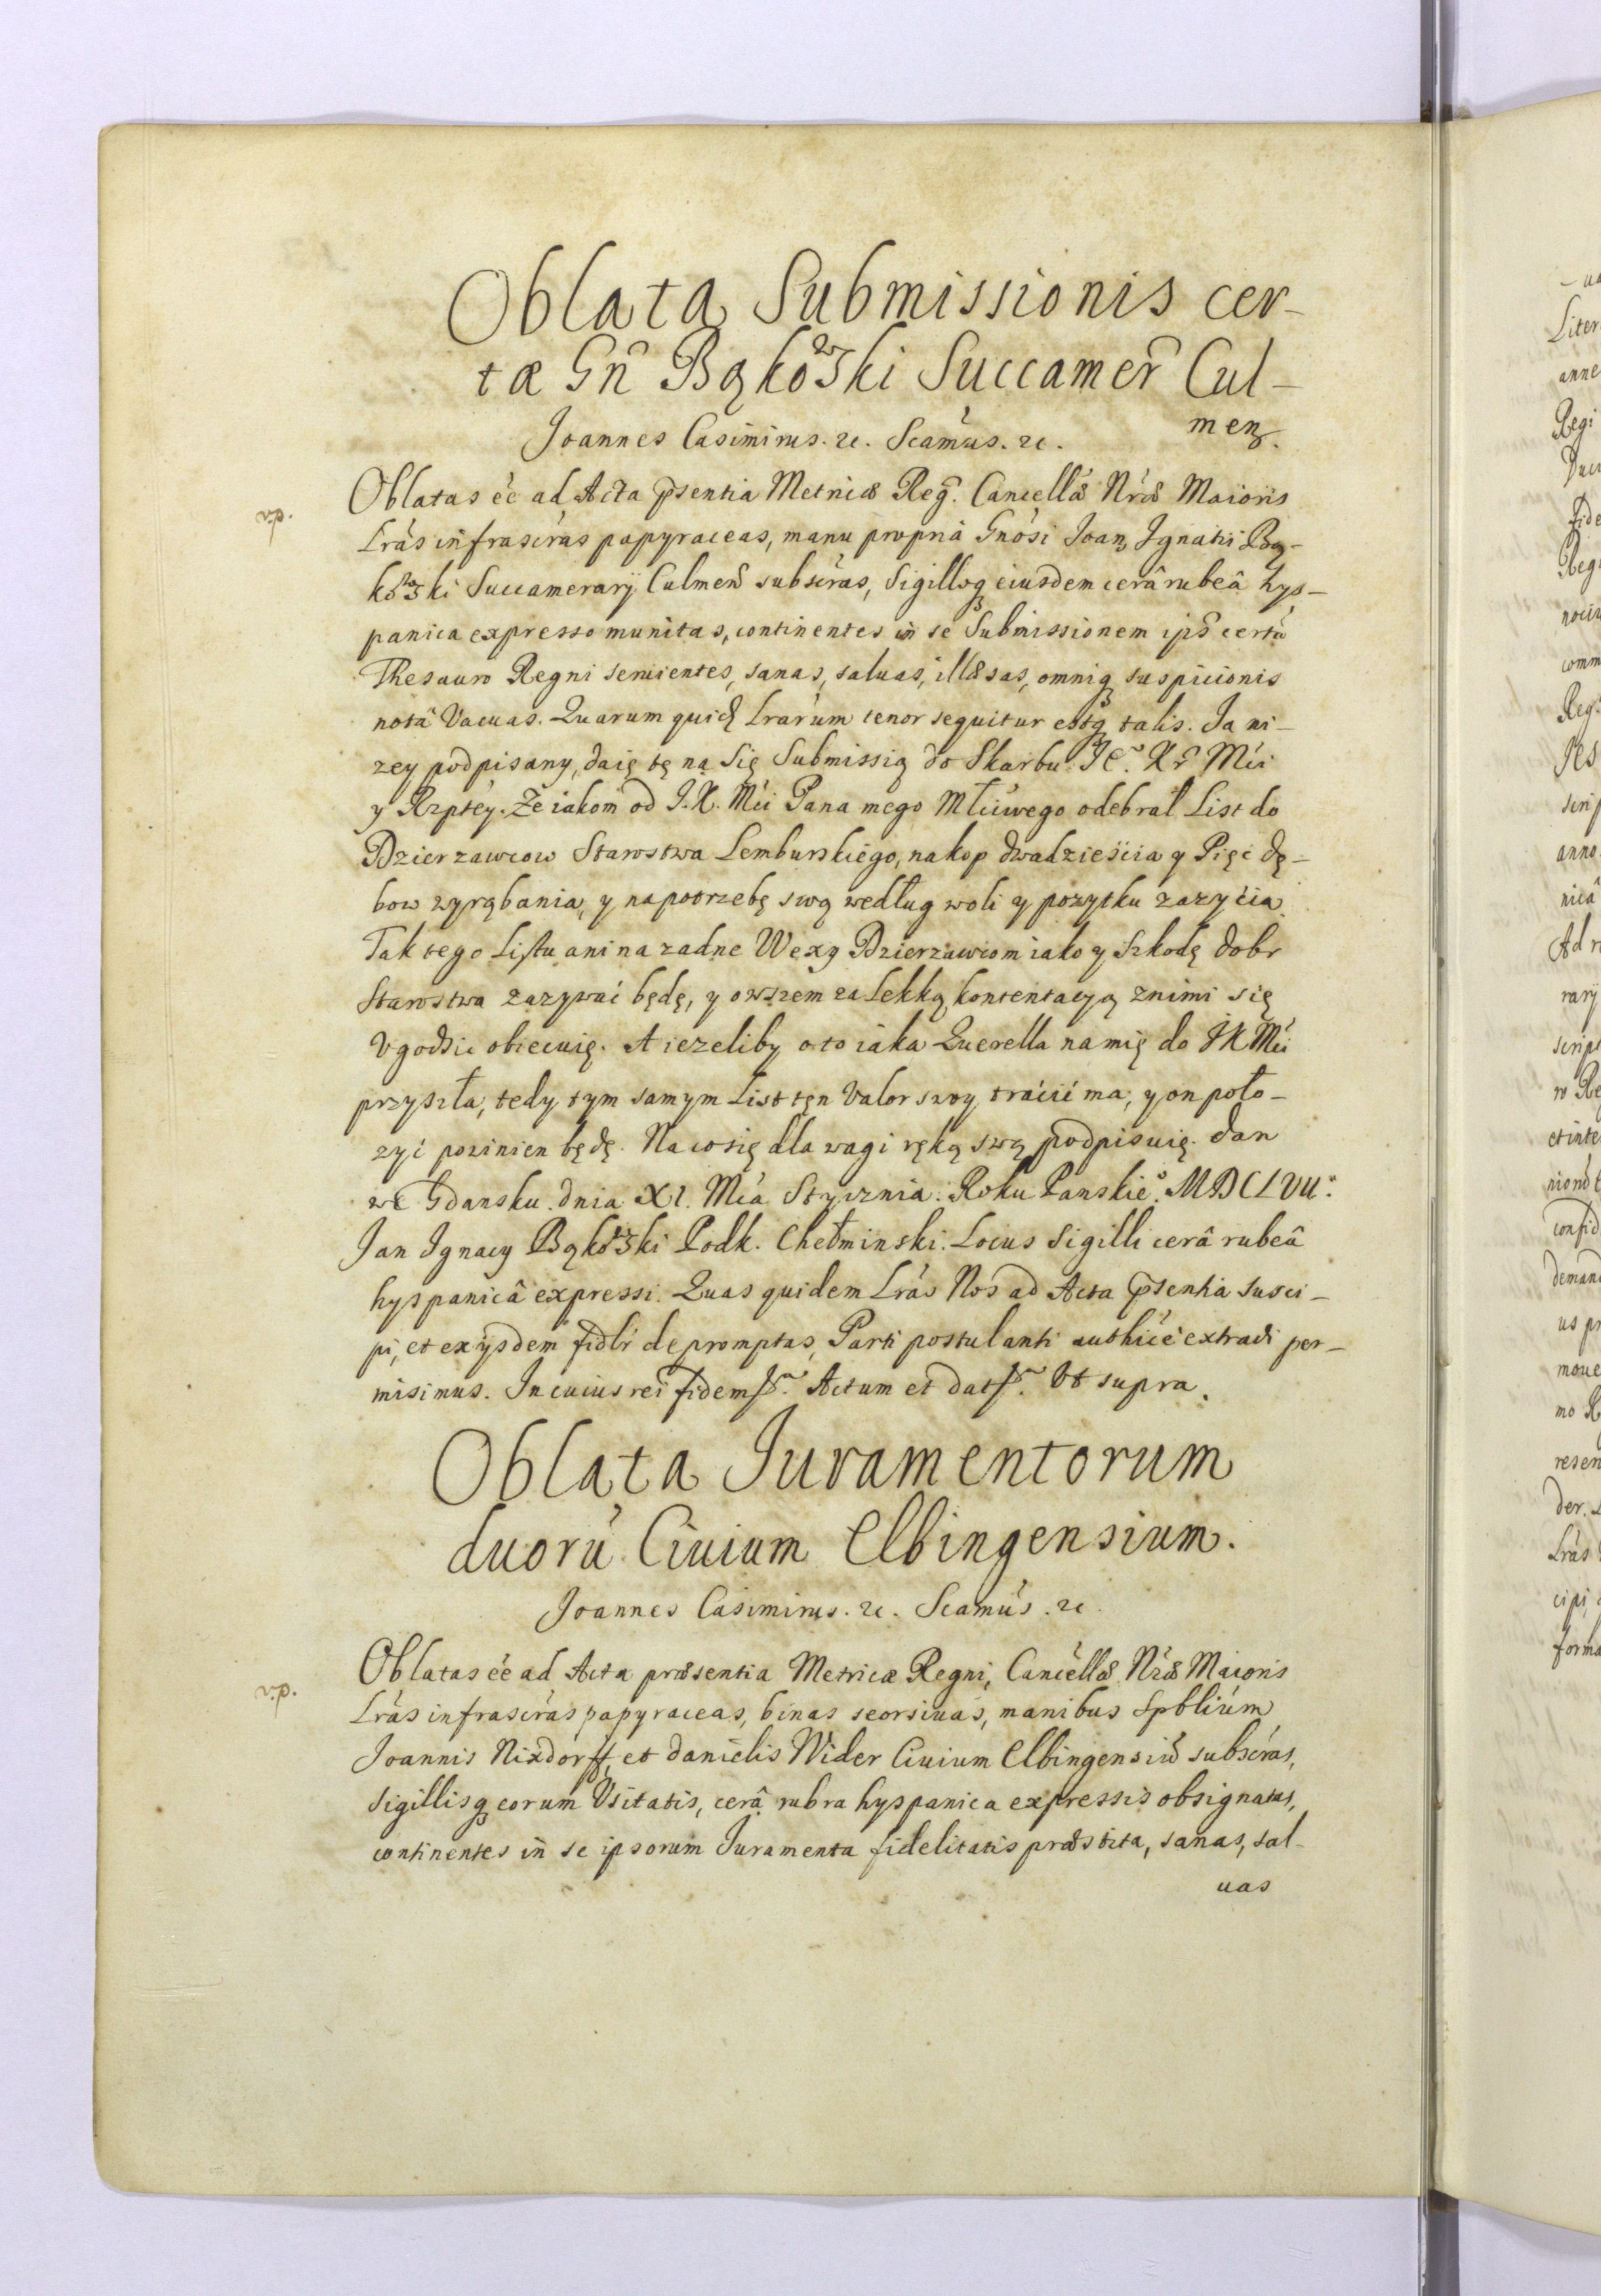 Oblata Submissionis cer-
tæ Gñ Bąkowski Succamer̃ Cul-
men.
Joannes Casimirus. &c. Scamus. &c.
Oblatas ee ad Acta p̃sentia Metricæ Reg. Cancellæ Nræ Maioris
Lras infrascras papyraceas, manu propria Gnosi Joan, Ignatii Bą-
kowski Succamerarij Culmen subscras, Sigilloq eiusdem cerâ rubeâ hys-
panica expresso munitas, continentes in se Submissionem ips certã
Thesauro Regni seruientes, sanas, saluas, illæsas, omniq suspicionis
nota Vacuas. Quarum quid Lrarum tenor sequitur estq talis. Ja ni-
zey podpisany, daię tę na Się Submissią do Skarbu JE. Kr Mci
y Rzptey. Ze iakom od J. K. Mci Pana mego Młciwego odebrał List do
Dzierzawcow Starostwa Lemburskiego, na kop dwadzieścia y Pięc dę-
bow wyrąbania, y na potrzebę swą według woli y pozytku zazycia
Tak tego Listu ani na zadne Wexy Dzierzawcom iako y Szkodę dobr
Starostwa zazywać będę, y owszem za Lekką kontentacyą znimi się
Vgodzic obiecuię. A iezeliby oto iaka Querella namię do JK Mci
przyszła, tedy tym samym List tęn Valor swoy tracić ma, y on poło-
zyć powinien będę. Na co się dla wagi ręką swą podpisuię. dan
we Gdansku. dnia XI. Mca Stycznia. Roku Panskie°. MDCLVII.
Jan Ignacy Bąkowski Podk. Chełminski. Locus Sigilli cerâ rubeâ
hyspanicâ expressi. Quas quidem Lras Nos ad Acta p̃sentia susci-
pi, et ex ijsdem fidlr depromptas, Parti postulanti authice extradi per-
misimus. In cuius rei fidem &c. Actum et dat &c. Vt supra.
Oblata Juramentorum
duorũ Ciuium Elbingensium.
Joannes Casimirus. &c. Scamus. &c.
Oblatas ee ad Acta præsentia Metricæ Regni, Cancellæ Nræ Maioris
Lras infrascras papyraceas, binas seorsiuas, manibus Spblium
Joannis Nixdorff, et Danielis Wider Ciuium Elbingensiũ subscras,
Sigillisq eorum Vsitatis, cerâ rubra hyspanica expressis obsignatas,
continentes in se ipsorum Juramenta fidelitatis præstita, sanas, sal-
uas